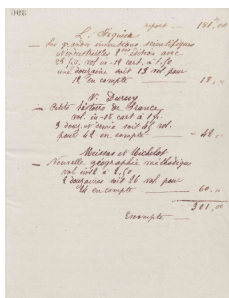 report — 181,00
L. Figuier
— Les grandes inventions scientifiques
et industrielles 2me édition avec
vol in-12 cart. à 1,50
une douzaine soit 13 vol pour
12 en compte — 18,"
V. Duruy
— Petite histoire de France
vol. in-18 cart à 1f
3 douz et demie soit 45 vol.
pour 42 en compte — 42,"
Meissas et Michelot
— Nouvelle géographie méthodique
vol in-12 à 2,50
2 douzaines soit 26 vol. pour
24 en compte — 60,"
301,00
Escompte —